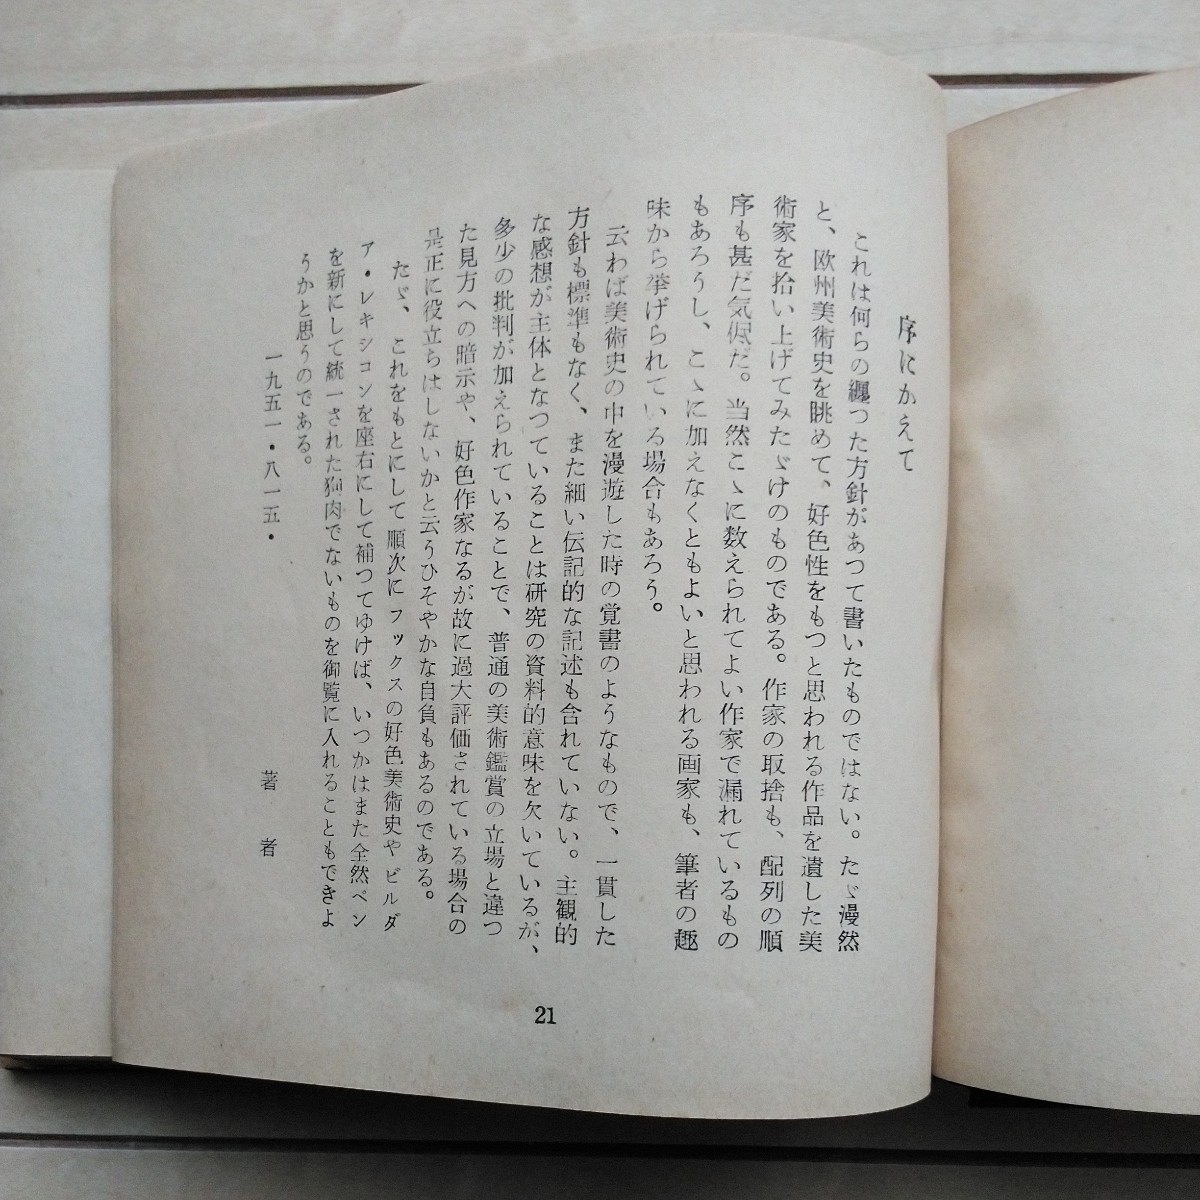 序にかえて
これは何らの纒つた方針があつて書いたものではない。たゞ漫然
と、欧州美術史を眺めて、好色性をもつと思われる作品を遺した美
術家を拾い上げてみたゞけのものである。作家の取捨も、配列の順
序も甚だ気侭だ。当然こゝに数えられてよい作家で漏れているもの
もあろうし、こゝに加えなくともよいと思われる画家も、筆者の趣
味から挙げられている場合もあろう。
云わば美術史の中を漫遊した時の覚書のようなもので、一貫した
方針も標準もなく、また細い伝記的な記述も含れていない。主観的
な感想が主体となつていることは研究の資料的意味を欠いているが、
多少の批判が加えられていることで、普通の美術鑑賞の立場と違つ
た見方への暗示や、好色作家なるが故に過大評価されている場合の
是正に役立ちはしないかと云うひそやかな自負もあるのである。
たゞ、これをもとにして順次にフックスの好色美術史やビルダ
ア・レキシコンを座右にして補つてゆけば、いつかはまた全然ペン
を新にして統一された狗肉でないものを御覧に入れることもできよ
うかと思うのである。
一九五一・八一五・
著者
21